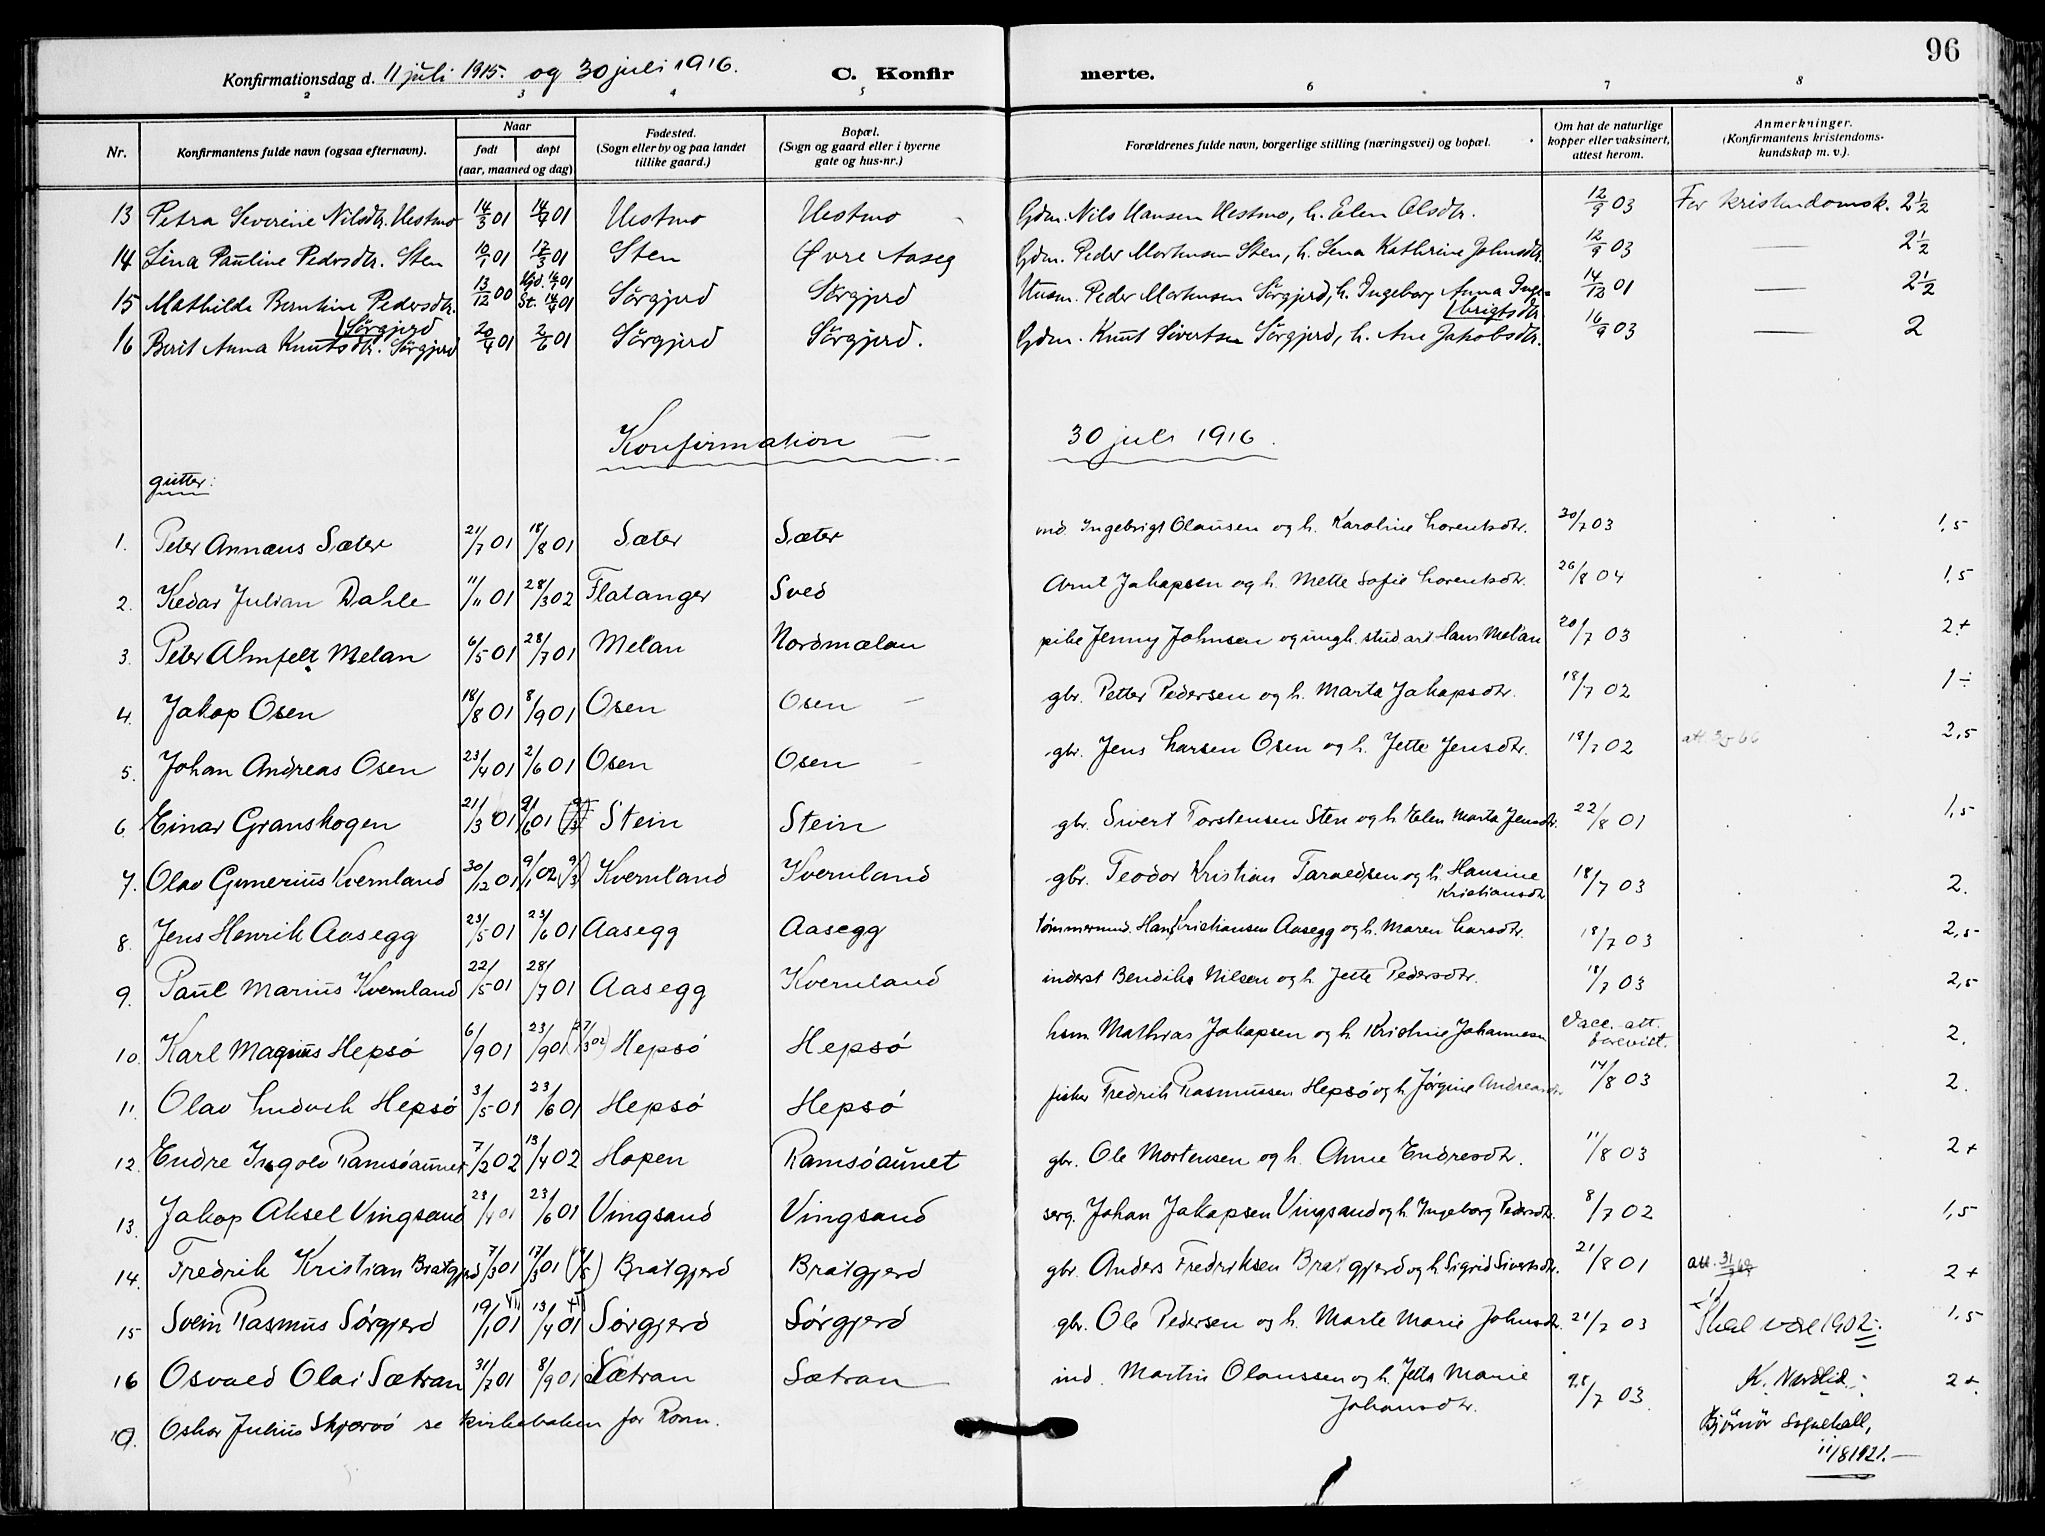 96
Konfirmationsdag d. 11 juli 1915. og 30 juli 1916. C. Konfir merte.
2 3 4 5 6 7 8
Nr. Konfirmantens fulde navn (ogsaa efternavn). Naar født døpt (aar, maaned og dag) Fødested. (Sogn eller by og paa landet tillike gaard.) Bopæl. (Sogn og gaard eller i byerne gate og hus-nr.) Forældrenes fulde navn, borgerlige stilling (næringsvei) og bopæl. Om hat de naturlige kopper eller vaksinert, attest herom. Anmerkninger. (Konfirmantens kristendoms-kundskap m. v.).
13 Petra Severine Nilsdtr. Hestmo 14/3 01 14/4 01 Hestmo Hestmo Gdm. Nils Hansen Hestmo, h. Elen Olsdtr. 12/9 03 For kristendomsk. 2½
14 Lina Pauline Pedrsdtr. Sten 10/1 01 17/3 01 Sten Øvre Aaseg Gdm. Peder Mortensen Sten, h. Lena Kathrine Johnsdtr. 12/9 03 — 2½
15 Mathilde Berntine Pedersdtr. Sörgjerd 13/12 00 Hjd. 14/1 01 St. 14/4 01 Sörgjerd Sörgjerd Husm. Peder Mortensen Sörgjerd, h. Ingeborg Anna Inge=brigtsdtr. 14/12 01 — 2½
16 Berit Anna Knutsdtr. Sörgjerd 20/4 01 2/6 01 Sörgjerd Sörgjerd. Gdm. Knut Sivertsen Sörgjerd, h. Ane Jakobsdtr. 16/9 03 — 2
Konfirmation — 30 juli 1916.
gutter:
1. Peter Annæus Sæter 21/7 01 18/8 01 Sæter Sæter ind. Ingebrigt Olausen og h. Karoline Lorentsdtr. 30/7 03 1,5
2. Kedar Julian Dahle 11/11 01 28/3 02 Flatanger Sved Arnt Jakopsen og h. Mette Sofie Lorentsdtr. 26/8 04 1,5
3. Peter Almfelt Melan 6/5 01 28/7 01 Melan Nordmælan pike Jenny Johnsen og ungk. stud art Hans Melan 20/7 03 2+
4. Jakop Osen 18/8 01 8/9 01 Osen Osen — gbr. Petter Pedersen og h. Marta Jakopsdtr. 18/7 02 1÷
5. Johan Andreas Osen 23/4 01 2/6 01 Osen Osen — gbr. Jens Larsen Osen og h. Jette Jensdtr. 18/7 02 2,5
6 Einar Granskogen 21/3 01 9/6 01 Stein Stein gbr. Sivert Torstensen Sten og h Elen Marta Jensdtr. 22/8 01 1,5
7. Olav Gunerius Kvernland 30/12 01 9/1 02 (9/3) Kvernland Kvernland gbr. Teodor Kristian Taraldsen og h. Hansine Kristiansdtr 18/7 03 2.
8. Jens Henrik Aasegg 23/5 01 23/6 01 Aasegg Aasegg tømmermd. Hans Kristiansen Aasegg og h. Maren Larsdtr. 18/7 03 2,5
9. Paul Marius Kvernland 22/5 01 28/7 01 Aasegg Kvernland inderst Bendiks Nilsen og h. Jette Pedersdtr. 18/7 03 2,5
10. Karl Magnus Hepsø 6/9 01 23/9 01 (27/3 02) Hepsø Hepsø hsm. Mathias Jakopsen og h. Kristine Johannesen Vacc. att. forevist. 2.
11. Olav Ludvik Hepsø 3/5 01 23/6 01 Hepsø Hepsø fisker Fredrik Rasmussen Hepsø og h. Jørgine Andreasdtr 14/8 03 2.
12. Endre Ingolv Ramsøaunet 7/2 02 13/4 02 Hopen Ramsøaunet gbr. Ole Mortensen og h. Anne Endresdtr. 11/8 03 2+
13. Jakop Aksel Vingsand 23/4 01 23/6 01 Vingsand Vingsand serg. Johan Jakopsen Vingsand og h. Ingeborg Pedersdtr. 8/7 02 1,5
14. Fredrik Kristian Bratgjerd 7/3 01 17/3 01 Bratgjerd Bratgjerd gbr. Anders Fredriksen Bratgjerd og h. Sigrid Sivertsdtr. 21/8 01 att. 2+
15 Svein Rasmus Sørgjerd 19/1 01 13/4 01 Sørgjerd Sørgjerd gbr. Ole Pedersen og h. Marte Marie Johnsdtr. 21/7 03 Skal være 1902. 1,5
16 Osvald Olai Sætran 31/7 01 8/9 01 Sætran Sætran ind. Martin Olaussen og h. Jette Marie Johansdtr. 28/7 03 K. Nordlid. 2+
19. Oskar Julius Skjærvø se kirkeboken for Roan. Bjørnör Sognekall, 11/8 1921.—